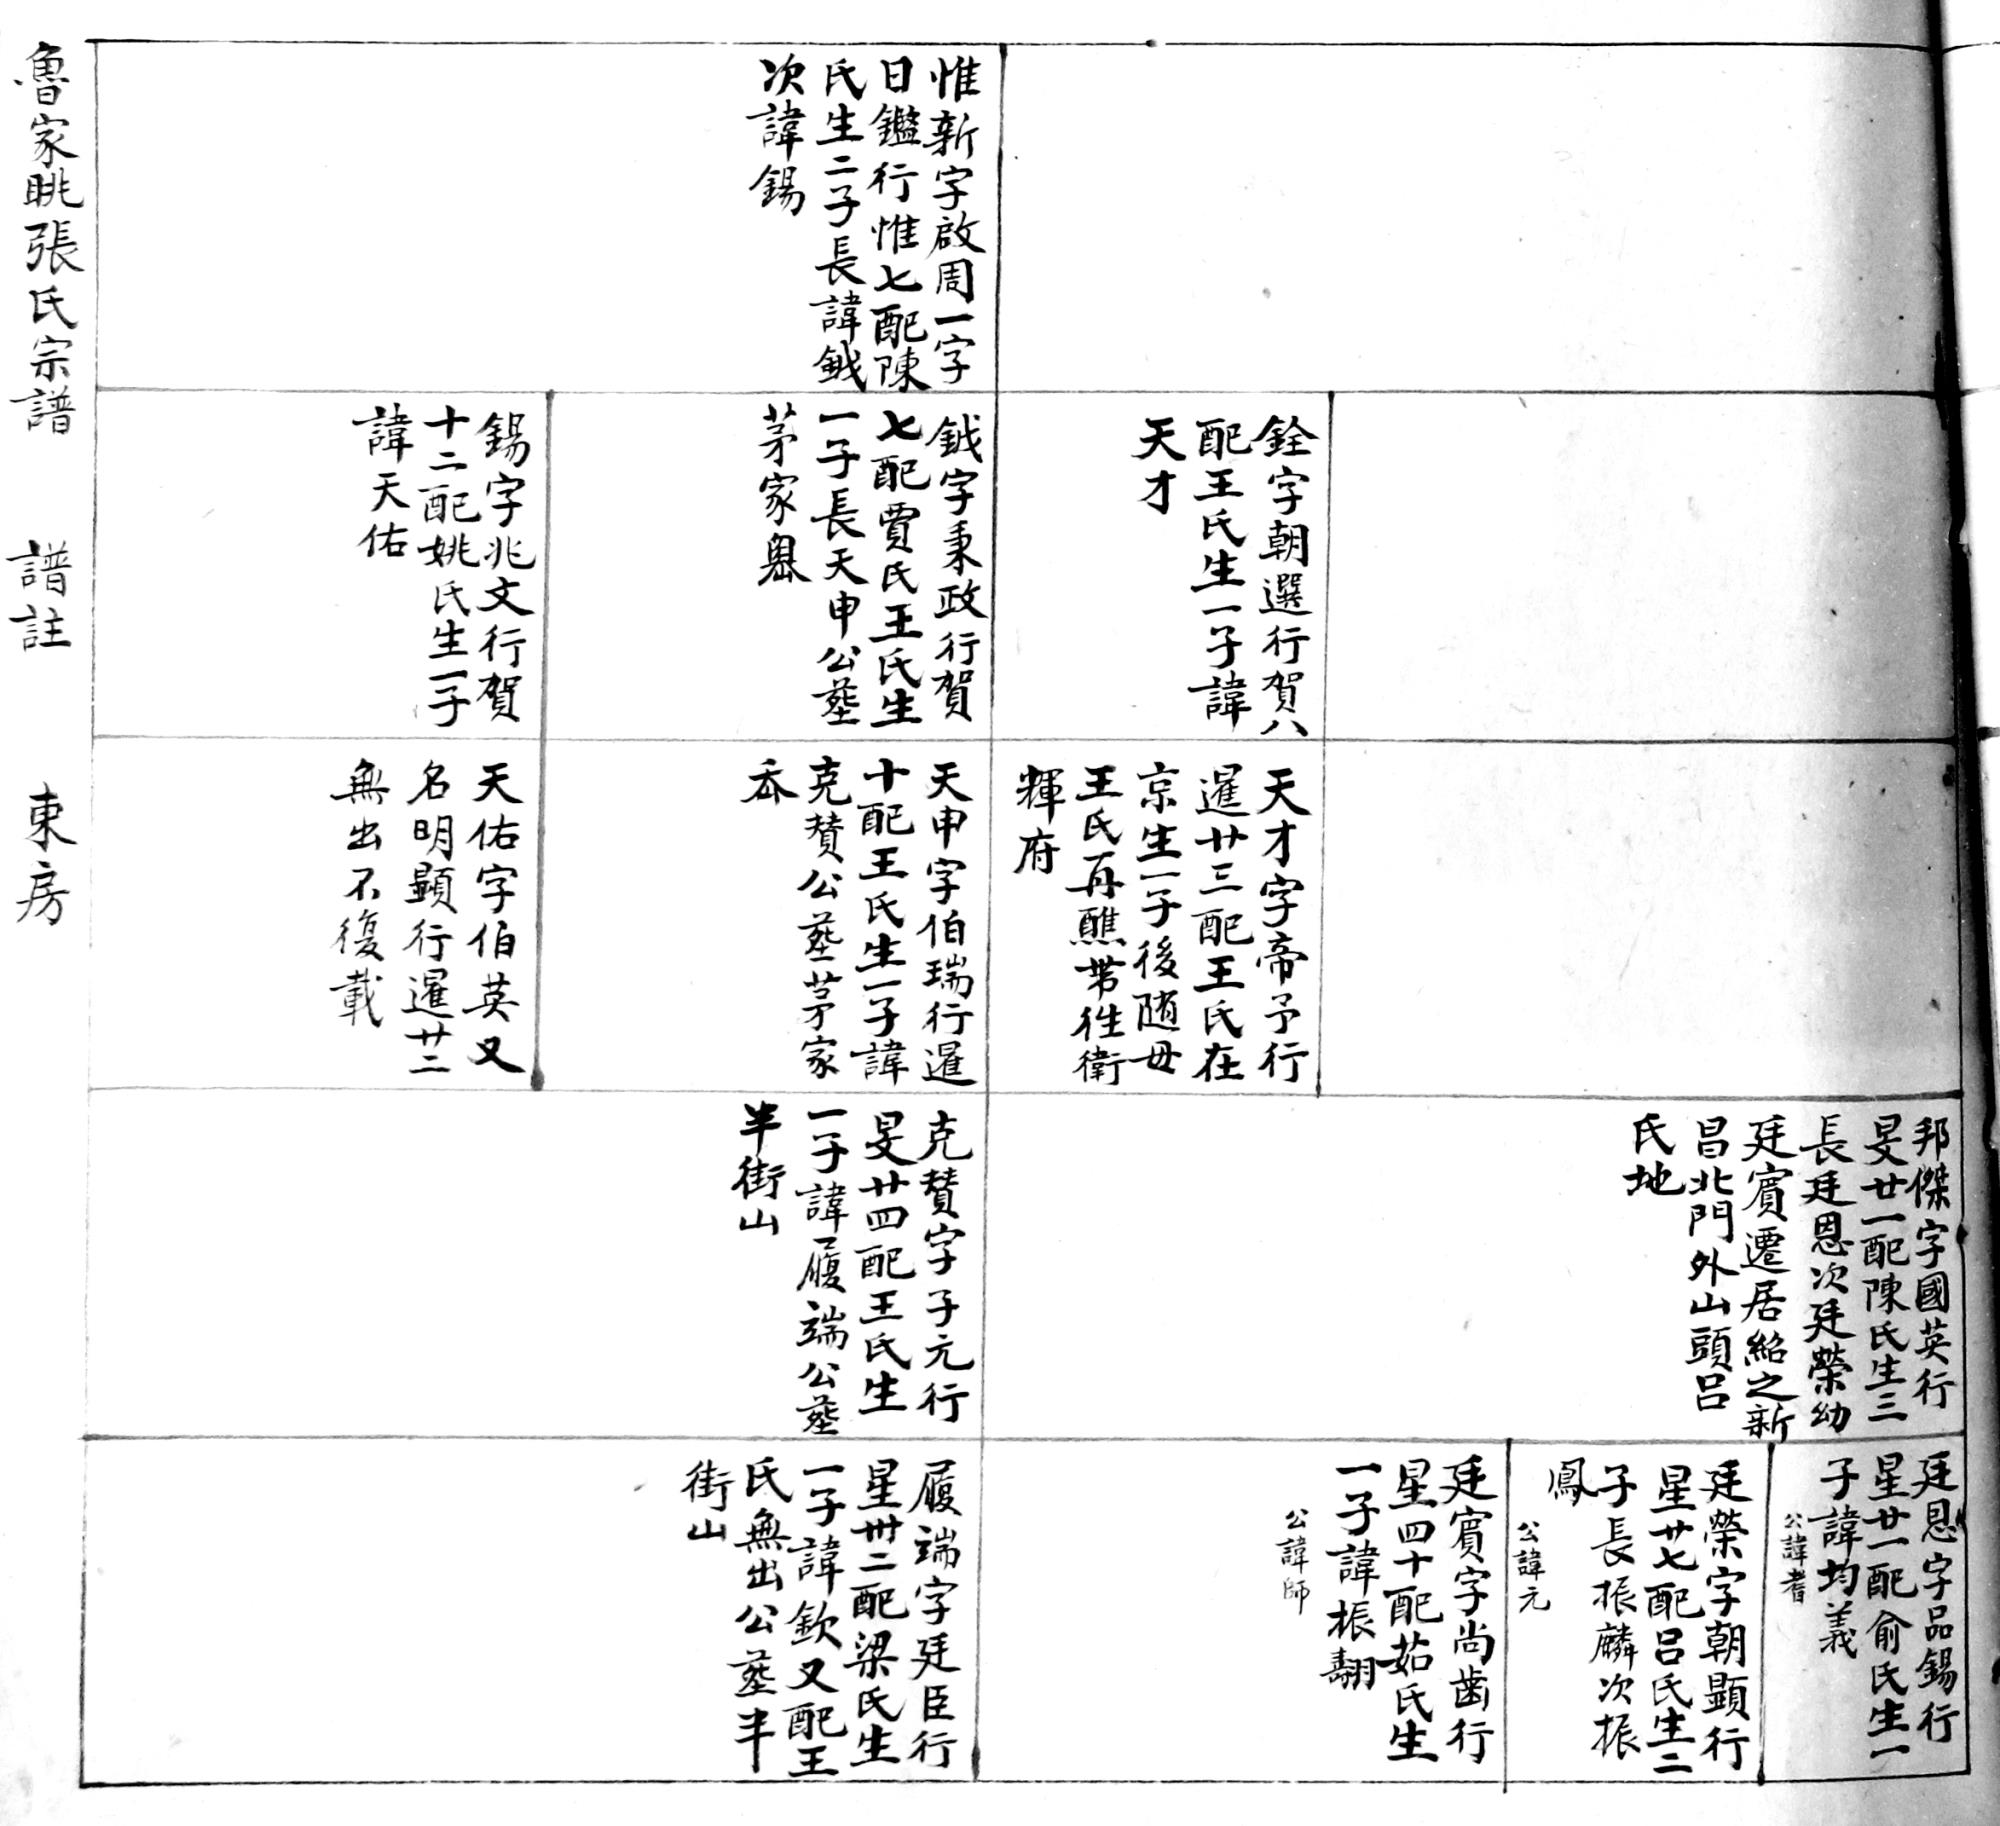 惟新字啟周一字
日鑑行惟七配陳
氏生二子長諱鉞
次諱錫
銓字朝選行賀八
配王氏生一子諱
天才
鉞字秉政行賀
七配賈氏王氏生
一子長天申公塟
茅家嶴
錫字兆文行賀
十二配姚氏生一子
諱天佑
天才字帝予行
暹廿三配王氏在
京生一子後随母
王氏再醮帯徃衛
輝府
天申字伯瑞行暹
十配王氏生一子諱
克賛公塟茅家
岙
天佑字伯英又
名明顯行暹廿二
無出不復載
邦傑字國英行
旻廿一配陳氏生三
長廷恩次廷榮幼
廷賓遷居紹之新
昌北門外山頭呂
氏地
克賛字子元行
旻廿四配王氏生
一子諱履端公塟
半街山
廷恩字品錫行
星廿一配俞氏生一
子諱均義
公諱耆
廷榮字朝顯行
星廿七配呂氏生二
子長振麟次振
鳳
公諱元
廷賓字尚齒行
星四十配茹氏生
一子諱振翮
公諱師
履端字廷臣行
星卅二配梁氏生
一子諱欽又配王
氏無出公塟半
街山
魯家眺張氏宗譜 譜註 東房